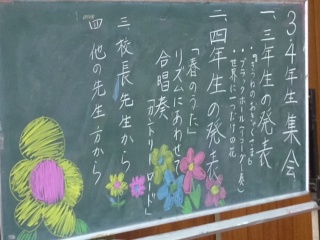 3・4年生集会
一、三年生の発表
・ブラックホール(リコーダー奏)
・世界に一つだけの花
二、四年生の発表
「春のうた」
リズムにあわせて
合唱奏「カントリーロード」
三、校長先生から
四 他の先生方から